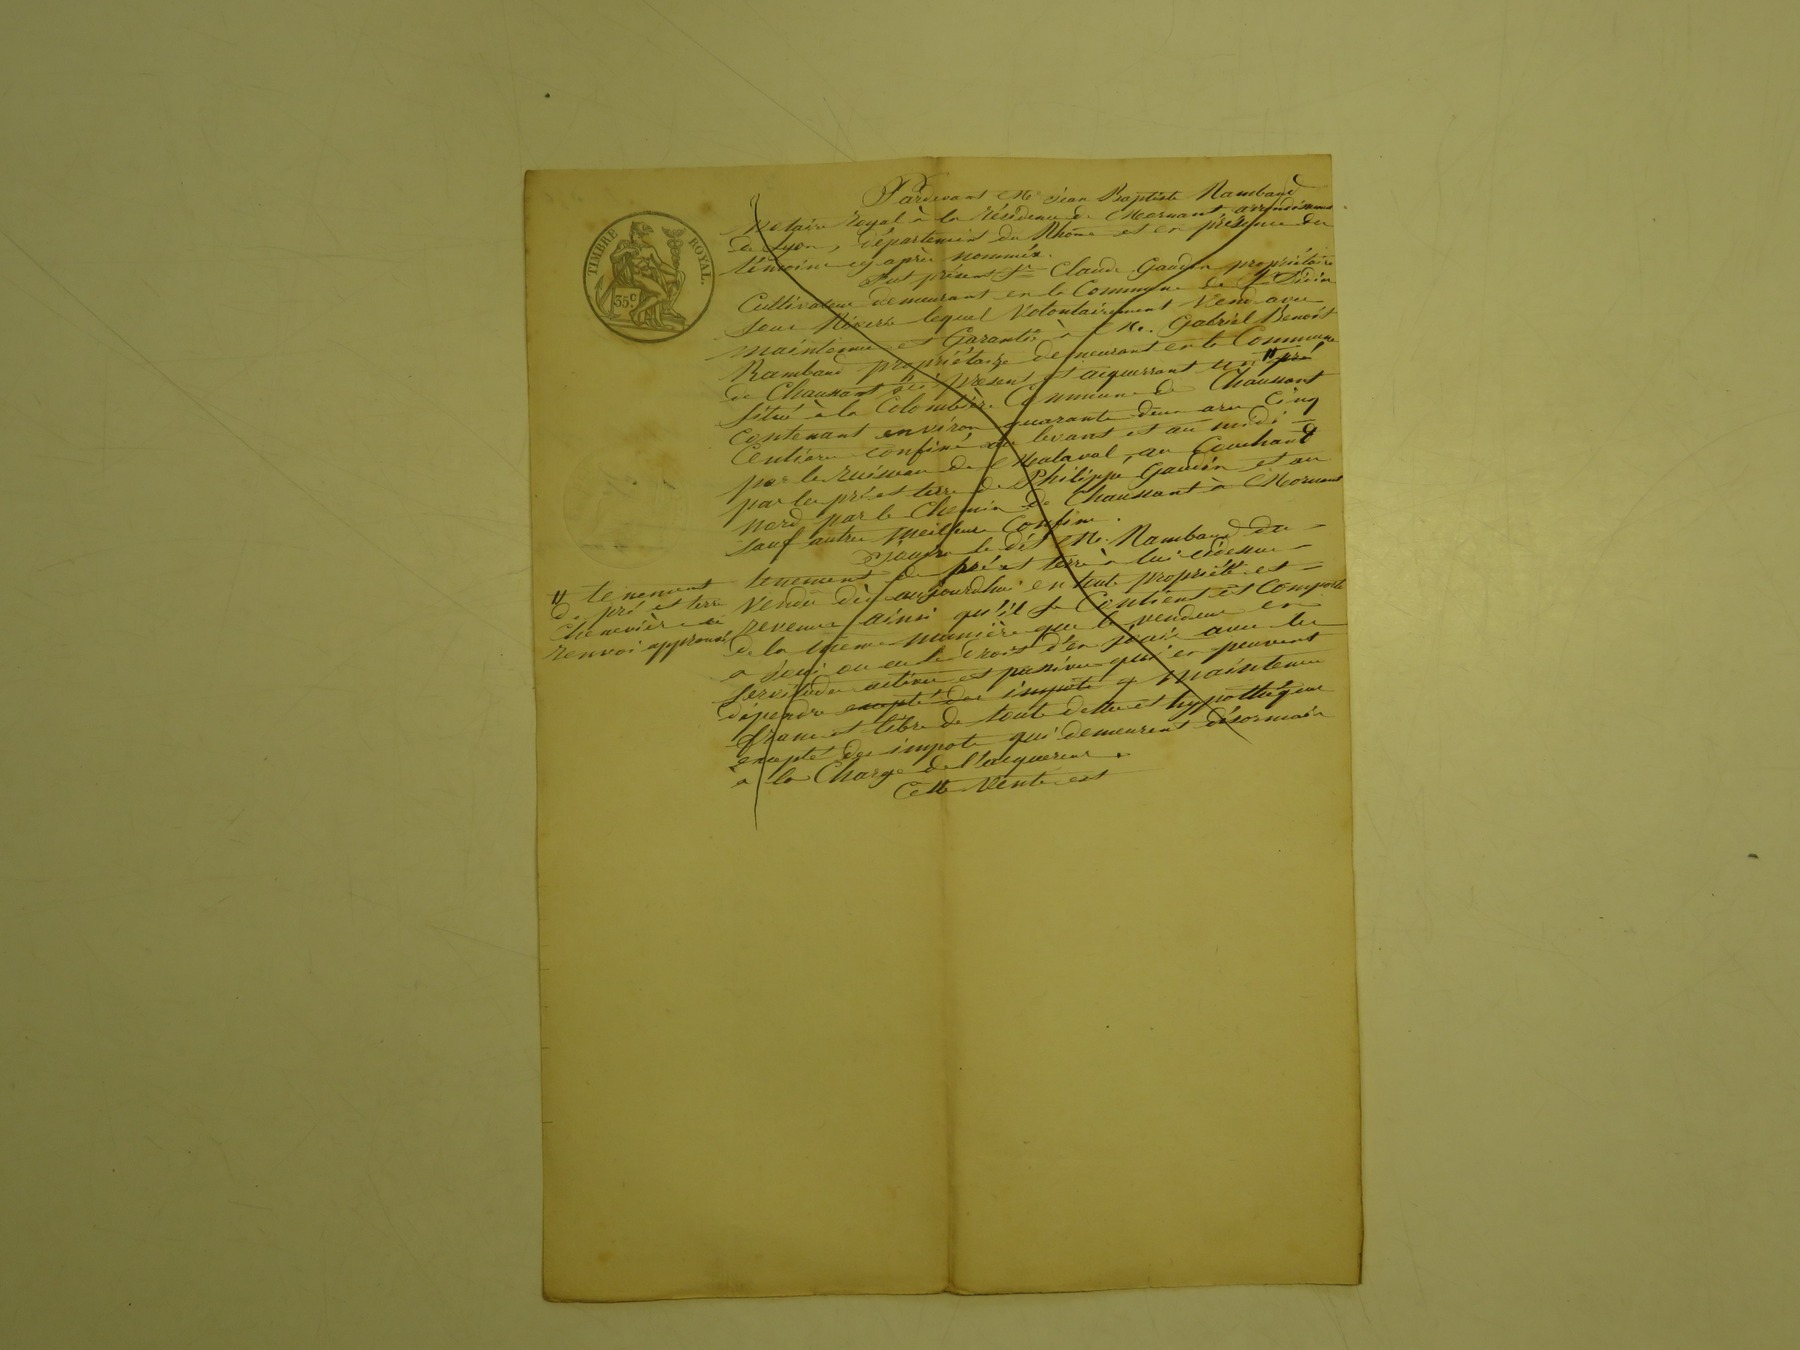 TIMBRE ROYAL.
35c.
Pardevant Me Jean Baptiste Rambaud
Notaire Royal à la résidence de Mornant arrondissement
de Lyon, département du Rhône et en présence des
témoins cy après nommés.
Fut présent Sr Claude Gaudin propriétaire
Cultivateur demeurant en la Commune de St
sous Riverie lequel Volontairement Vend avec
maintenue et Garantie à Mr. Gabriel Benoit
Rambaud propriétaire demeurant en la Commune
de Chaussant ici présent et aiquerrant un " pré
situé à la Colombière Commune de Chaussant
contenant environ quarante deux ares Cinq
Centiares confiné au levant et au midi
par le ruisseau de Malaval, au Couchant
par les pré et terre de Philippe Gaudin et au
nord par le Chemin de Chaussant à Mornant
sauf autres meilleurs Confins.
Jouira le dit Mr. Rambaud du
tenement de pré et terre à lui cidessus
Vendu dès aujourdhui en toute propriété et
revenus ainsi qu'il se Contient et Comporte
de la même manière que le vendeur en
a joui ou eu le droit d'en jouir avec les
servitudes actives et passives qui en peuvent
dépendre excepté des impots & maintenu
franc et libre de toute dette et hypothèque
excepté des impots qui demeurent désormais
à la Charge de l'acquereur.
Cette Vente est
" tenement
de pré et terre
Chenevière
renvoi approuvé